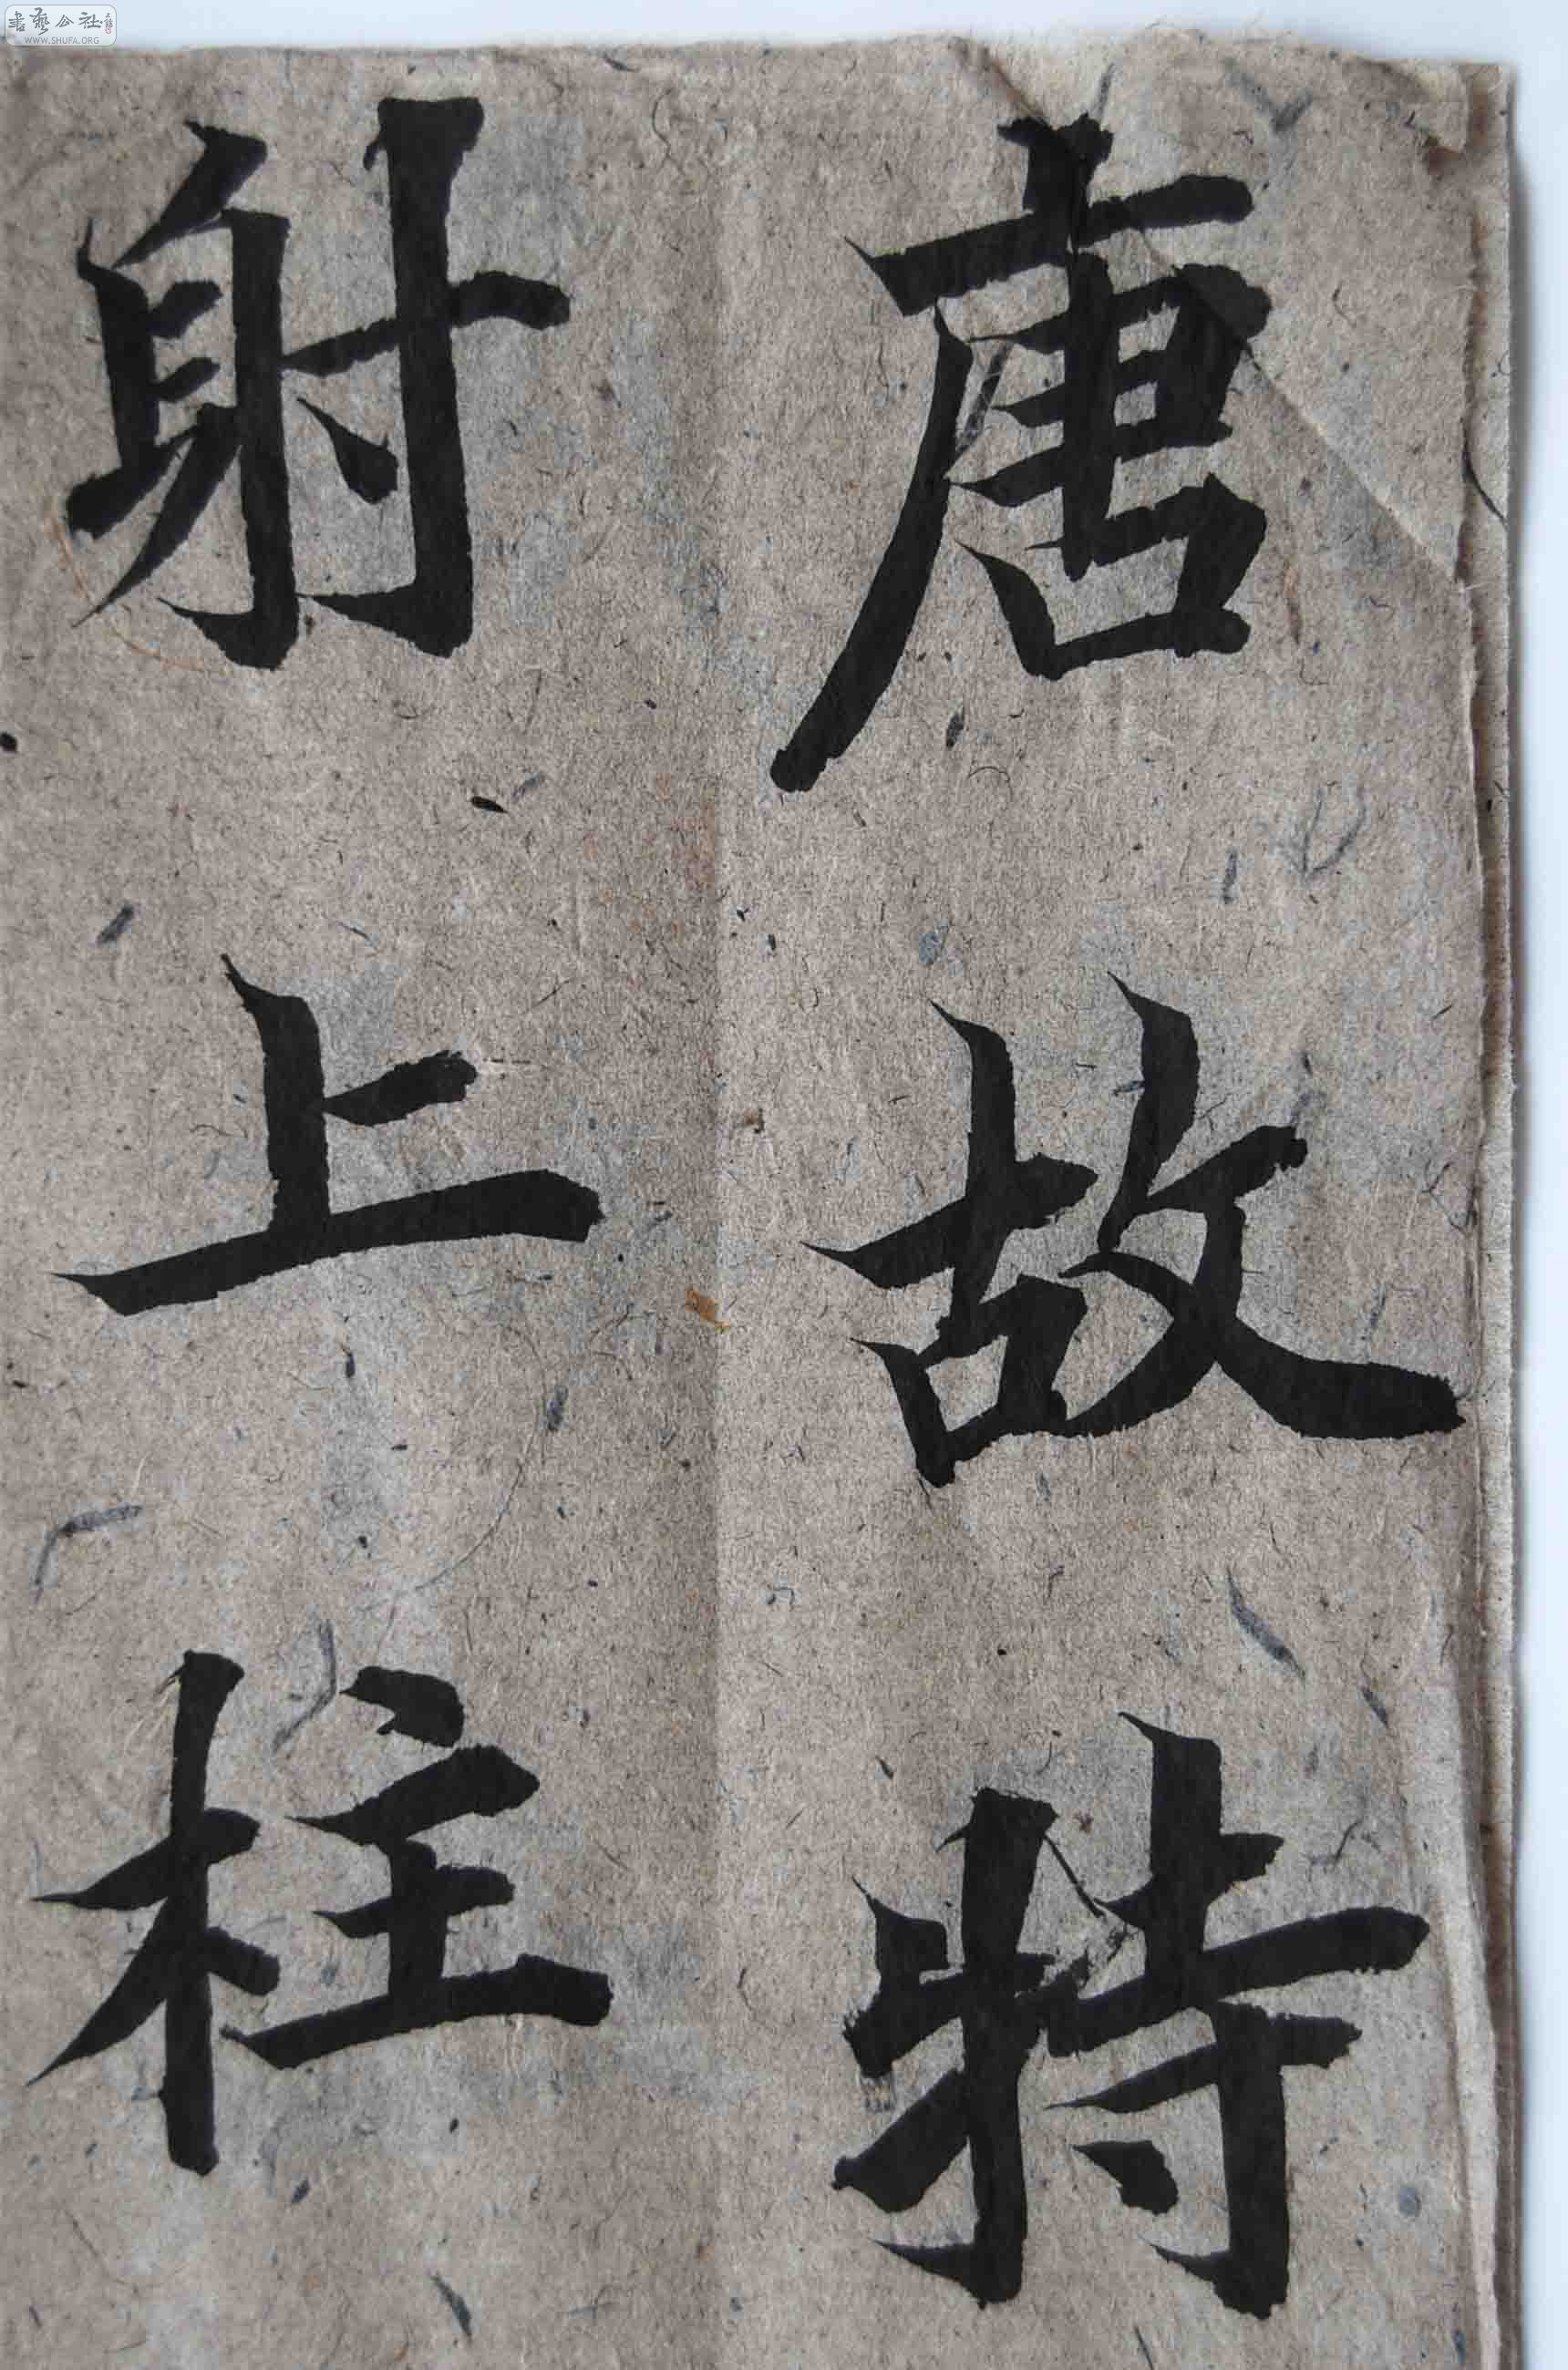 唐故特
射上柱
書藝公社
WWW.SHUFA.ORG